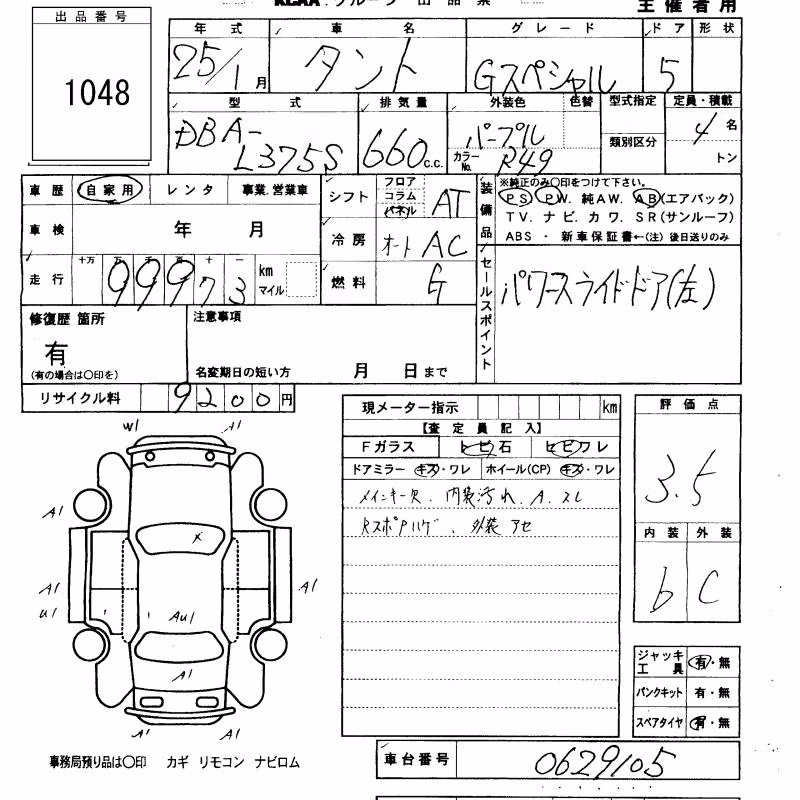 KCAA.グループ 出品票
主催者用
出品番号
1048
年式 車名 グレード ドア 形状
25/1月 タント Gスペシャル 5
型式 排気量 外装色 色替 型式指定 定員・積載
類別区分
DBA-L375S 660c.c. パープル カラーNo. R49 4名
トン
車歴 自家用 レンタ 事業.営業車
車検 年 月
走行 十万 万 千 百 十 一
99973 km マイル
シフト フロア コラム パネル AT
冷房 オート AC
燃料 G
装備品 ※純正のみ〇印をつけて下さい。
PS. PW. 純AW. AB(エアバック)
TV. ナビ. カワ. SR(サンルーフ)
ABS ・ 新車保証書←(注) 後日送りのみ
セールスポイント パワースライドドア(左)
修復歴 箇所
有
(有の場合は〇印を)
注意事項
名変期日の短い方 月 日まで
リサイクル料 9200円
現メーター指示 km
【査定員記入】
Fガラス トビ石 ヒビワレ
ドアミラー キズ・ワレ ホイール(CP) キズ・ワレ
メインキー欠. 内装汚れ. A. スレ
RスポPハゲ. 外装 アセ
評価点
3.5
内装 外装
b C
W1 A1
A1
A1 A1
U1
X
AU1
A1
A1 A1
ジャッキ工具 有・無
パンクキット 有・無
スペアタイヤ 有・無
事務局預り品は〇印 カギ リモコン ナビロム
車台番号 0629105